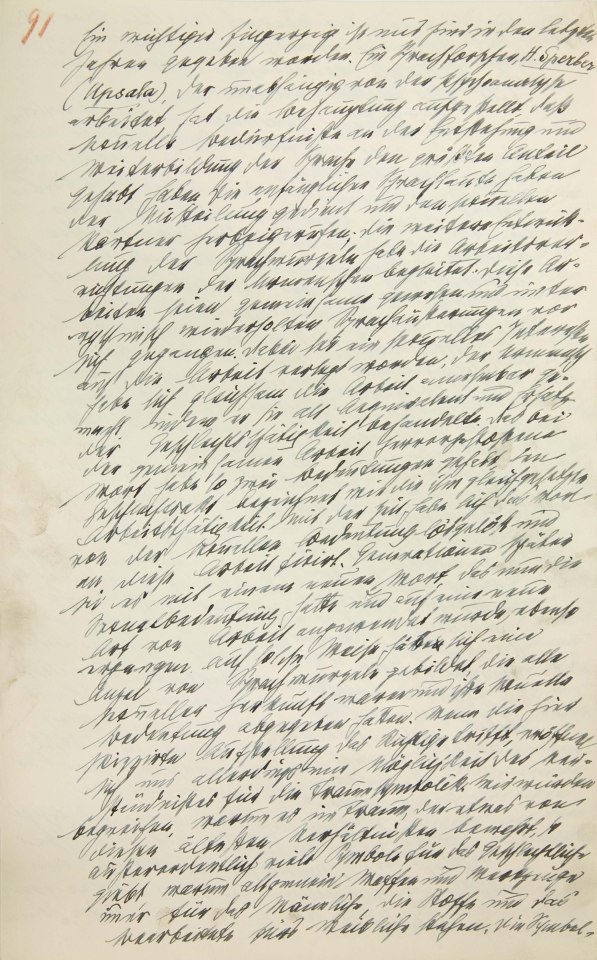 91
Ein wichtiger Fingerzeig ist uns hier in den letzten
Jahren gegeben worden. Ein Sprachforscher, H. Sperber
(Upsala), der unabhängig von der Psychoanalyse
arbeitet, hat die Behauptung aufgestellt, daß
sexuelle Bedürfnisse an der Entstehung und
Weiterbildung der Sprache den größten Anteil
gehabt haben. Die anfänglichen Sprachlaute haben
der Mitteilung gedient und den sexuellen
Partner herbeigerufen; die weitere Entwick-
lung der Sprachwurzeln habe die Arbeitsver-
richtungen der Urmenschen begleitet. Diese Ar-
beiten seien gemeinsame gewesen und unter
rythmisch wiederholten Sprachäußerungen vor
sich gegangen. Dabei sei ein sexuelles Interesse
auf die Arbeit verlegt worden. Der Urmensch
habe sich gleichsam die Arbeit annehmbar ge-
macht, indem er sie als Aequivalent und Ersatz
der Geschlechtsthätigkeit behandelte. Das bei
der gemeinsamen Arbeit hervorgestoßene
Wort habe so zwei Bedeutungen gehabt, den
Geschlechtsakt bezeichnet wie die ihm gleichgesetzte
Arbeitsthätigkeit. Mit der Zeit habe sich das Wort
von der sexuellen Bedeutung losgelöst und
an diese Arbeit fixirt. Generationen später
sei es mit einem neuen Wort, das nun die
Sexualbedeutung hatte und auf eine neue
Art von Arbeit angewendet wurde, ebenso
ergangen. Auf solche Weise hätten sich eine
Anzal von Sprachwurzeln gebildet, die alle
sexueller Herkunft waren und ihre sexuelle
Bedeutung abgegeben hatten. Wenn die hier
skizzirte Aufstellung das Richtige trifft, eröffnet
sich uns allerdings eine Möglichkeit des Ver-
ständnisses für die Traumsymbolik. Wir würden
begreifen, warum es im Traum, der etwas von
diesen ältesten Verhältnissen bewahrt, so
außerordentlich viele Symbole für das Geschlechtliche
giebt, warum allgemein Waffen und Werkzeuge
immer für das Männliche, die Stoffe und das
Bearbeitete fürs Weibliche stehen. Die Symbol-